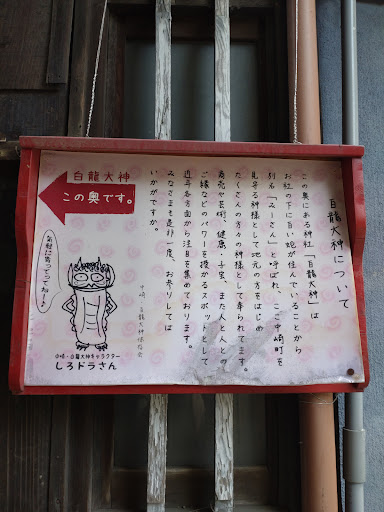 白龍大神について
この奥にある神社「白龍大神」は
お社の下に白い蛇が住んでいることから
別名「みーさん」と呼ばれ、ここ中崎町を
見守る神様として地元の方をはじめ
たくさんの方々の神様として奉られてます。
商売や芸術、健康・子宝、また人と人との
ご縁などのパワーを授かるスポットとして
近年各方面から注目を集めております。
みなさまも是非一度、お参りしては
いかがですか。
中崎・白龍大神保存会
白龍大神
この奥です。
気軽に寄ってってねー♪
中崎・白龍大神キャラクター
しろドラさん